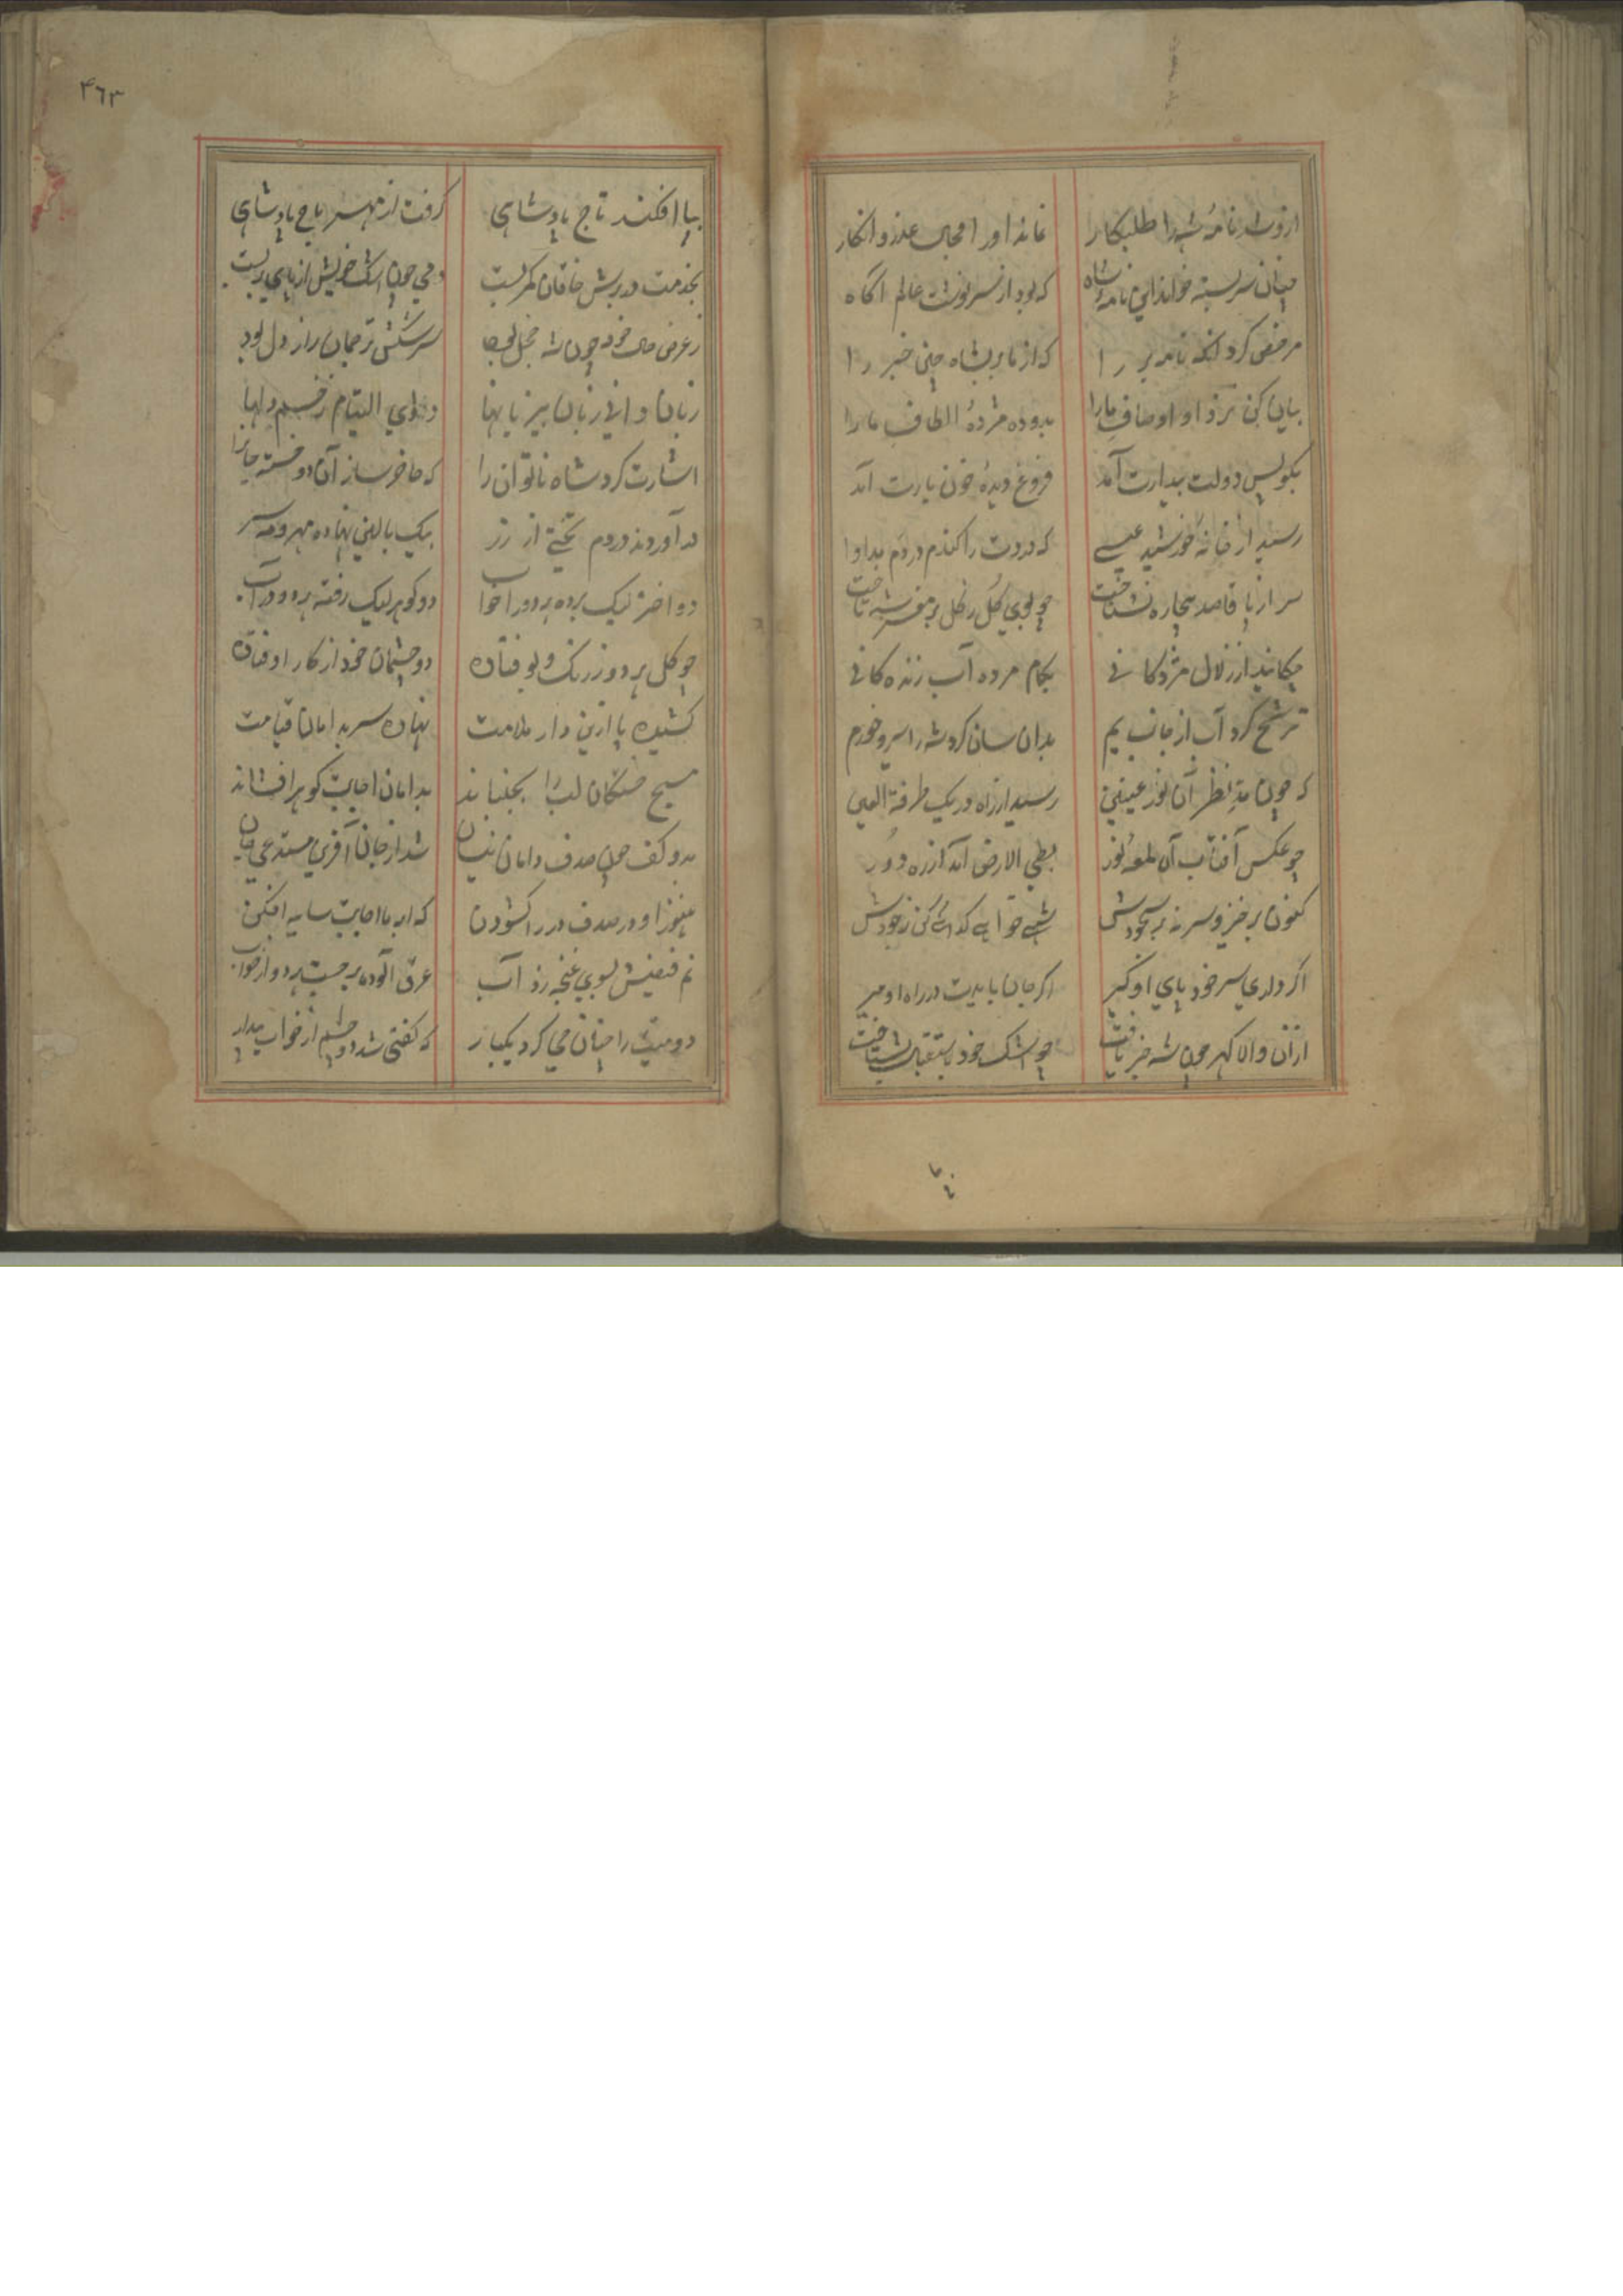 ازو شد نامهٔ شه را طلبکار نماند او را مجال عذر و انکار
چنان سربسته خواند این نامهٔ شاه که بود از سرنوشت عالم آگاه
مرخص کرد آنکه نامه بر را که از ما بر بشاه چین خبر را
بیان کن نزد او اوصاف ما را بدو ده مژدهٔ الطاف ما را
بکویس دولت بیدارت آمد فروغ دیدهٔ خون بارت آمد
رسید از خانهٔ خورشید عیسی که دردت را کند در دم مداوا
سر از پا قاصد بیچاره نشناخت چو بوی کل ز کل بر مغز شه تاخت
چکانید از زلال مژدکانی بکام مرده آب زنده کانی
ترشح کرد آب از جانب یم بدان سان کرد شه را سبز و خرم
که چون مد نظر آن نور عینین رسید از راه در یک طرفة العین
چو عکس آفتاب آن لمعهٔ نور بطی الارض آمد از ره دور
کنون برخیز و سر نه بر سجودش شهی خواهی کدائی کن ز جودش
اکر داری سر خود پای او کیر اکر جان بایدت در راه او میر
از آن والا کهر چون شه خبر یافت چو اشک خود باستقبال بشتافت
۴٦۳
بپا افکند تاج پادشاهی کرفت از مهر تاج پادشاهی
بخدمت در برش خاقان کمر بست دمی چون اشک خویش از پای ننشست
ز عرض حال خود چون شه خجل بود سرشکش ترجمان راز دل بود
زبان دانی زبان بیزبانها دوای التیام زخم دلها
اشارت کرد شاه ناتوان را که حاضر ساز آن دو خسته جان را
در آوردند در دم تختی از زر بیک بالین نهاده مهر و مه سر
دو اختر لیک برده هر دو را خواب دو کوهر لیک رفته هر دو را آب
چو کل هر دو ز رنک و بو فتاده دو چشمان خود از کار اوفتاده
کشیده پا ازین دار ملامت نهاده سر بدامان قیامت
مسیح خستکان لب را بجنباند بدامان اجابت کوهر افشاند
بدو کف چون صدف دامان نیسان شد از جان آفرین مستدعی جان
هنوز او در صدف در را کشودن که ابر با اجابت سایه افکن
نم فیضش بسوی غنچه زد آب عرق آلوده برجست هر دو از خواب
دو میت را چنان حی کرد یکبار که کفتی شد دو چشم از خواب بیدار